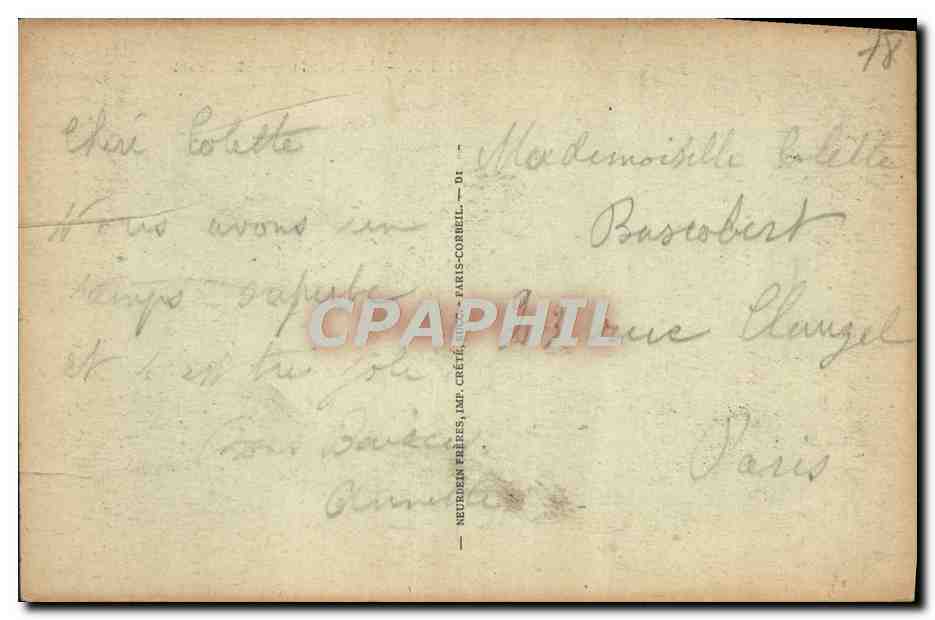 18
Chéré Colette
Nous avons un
temps superbe
et s est tré joli
bons Baisers
Annette
NEURDEIN FRÈRES, IMP. CRÉTÉ, SUCC. - PARIS-CORBEIL. — D1
Mademoiselle Colette
Bascobert
rue Clauzel
Paris
CPAPHIL